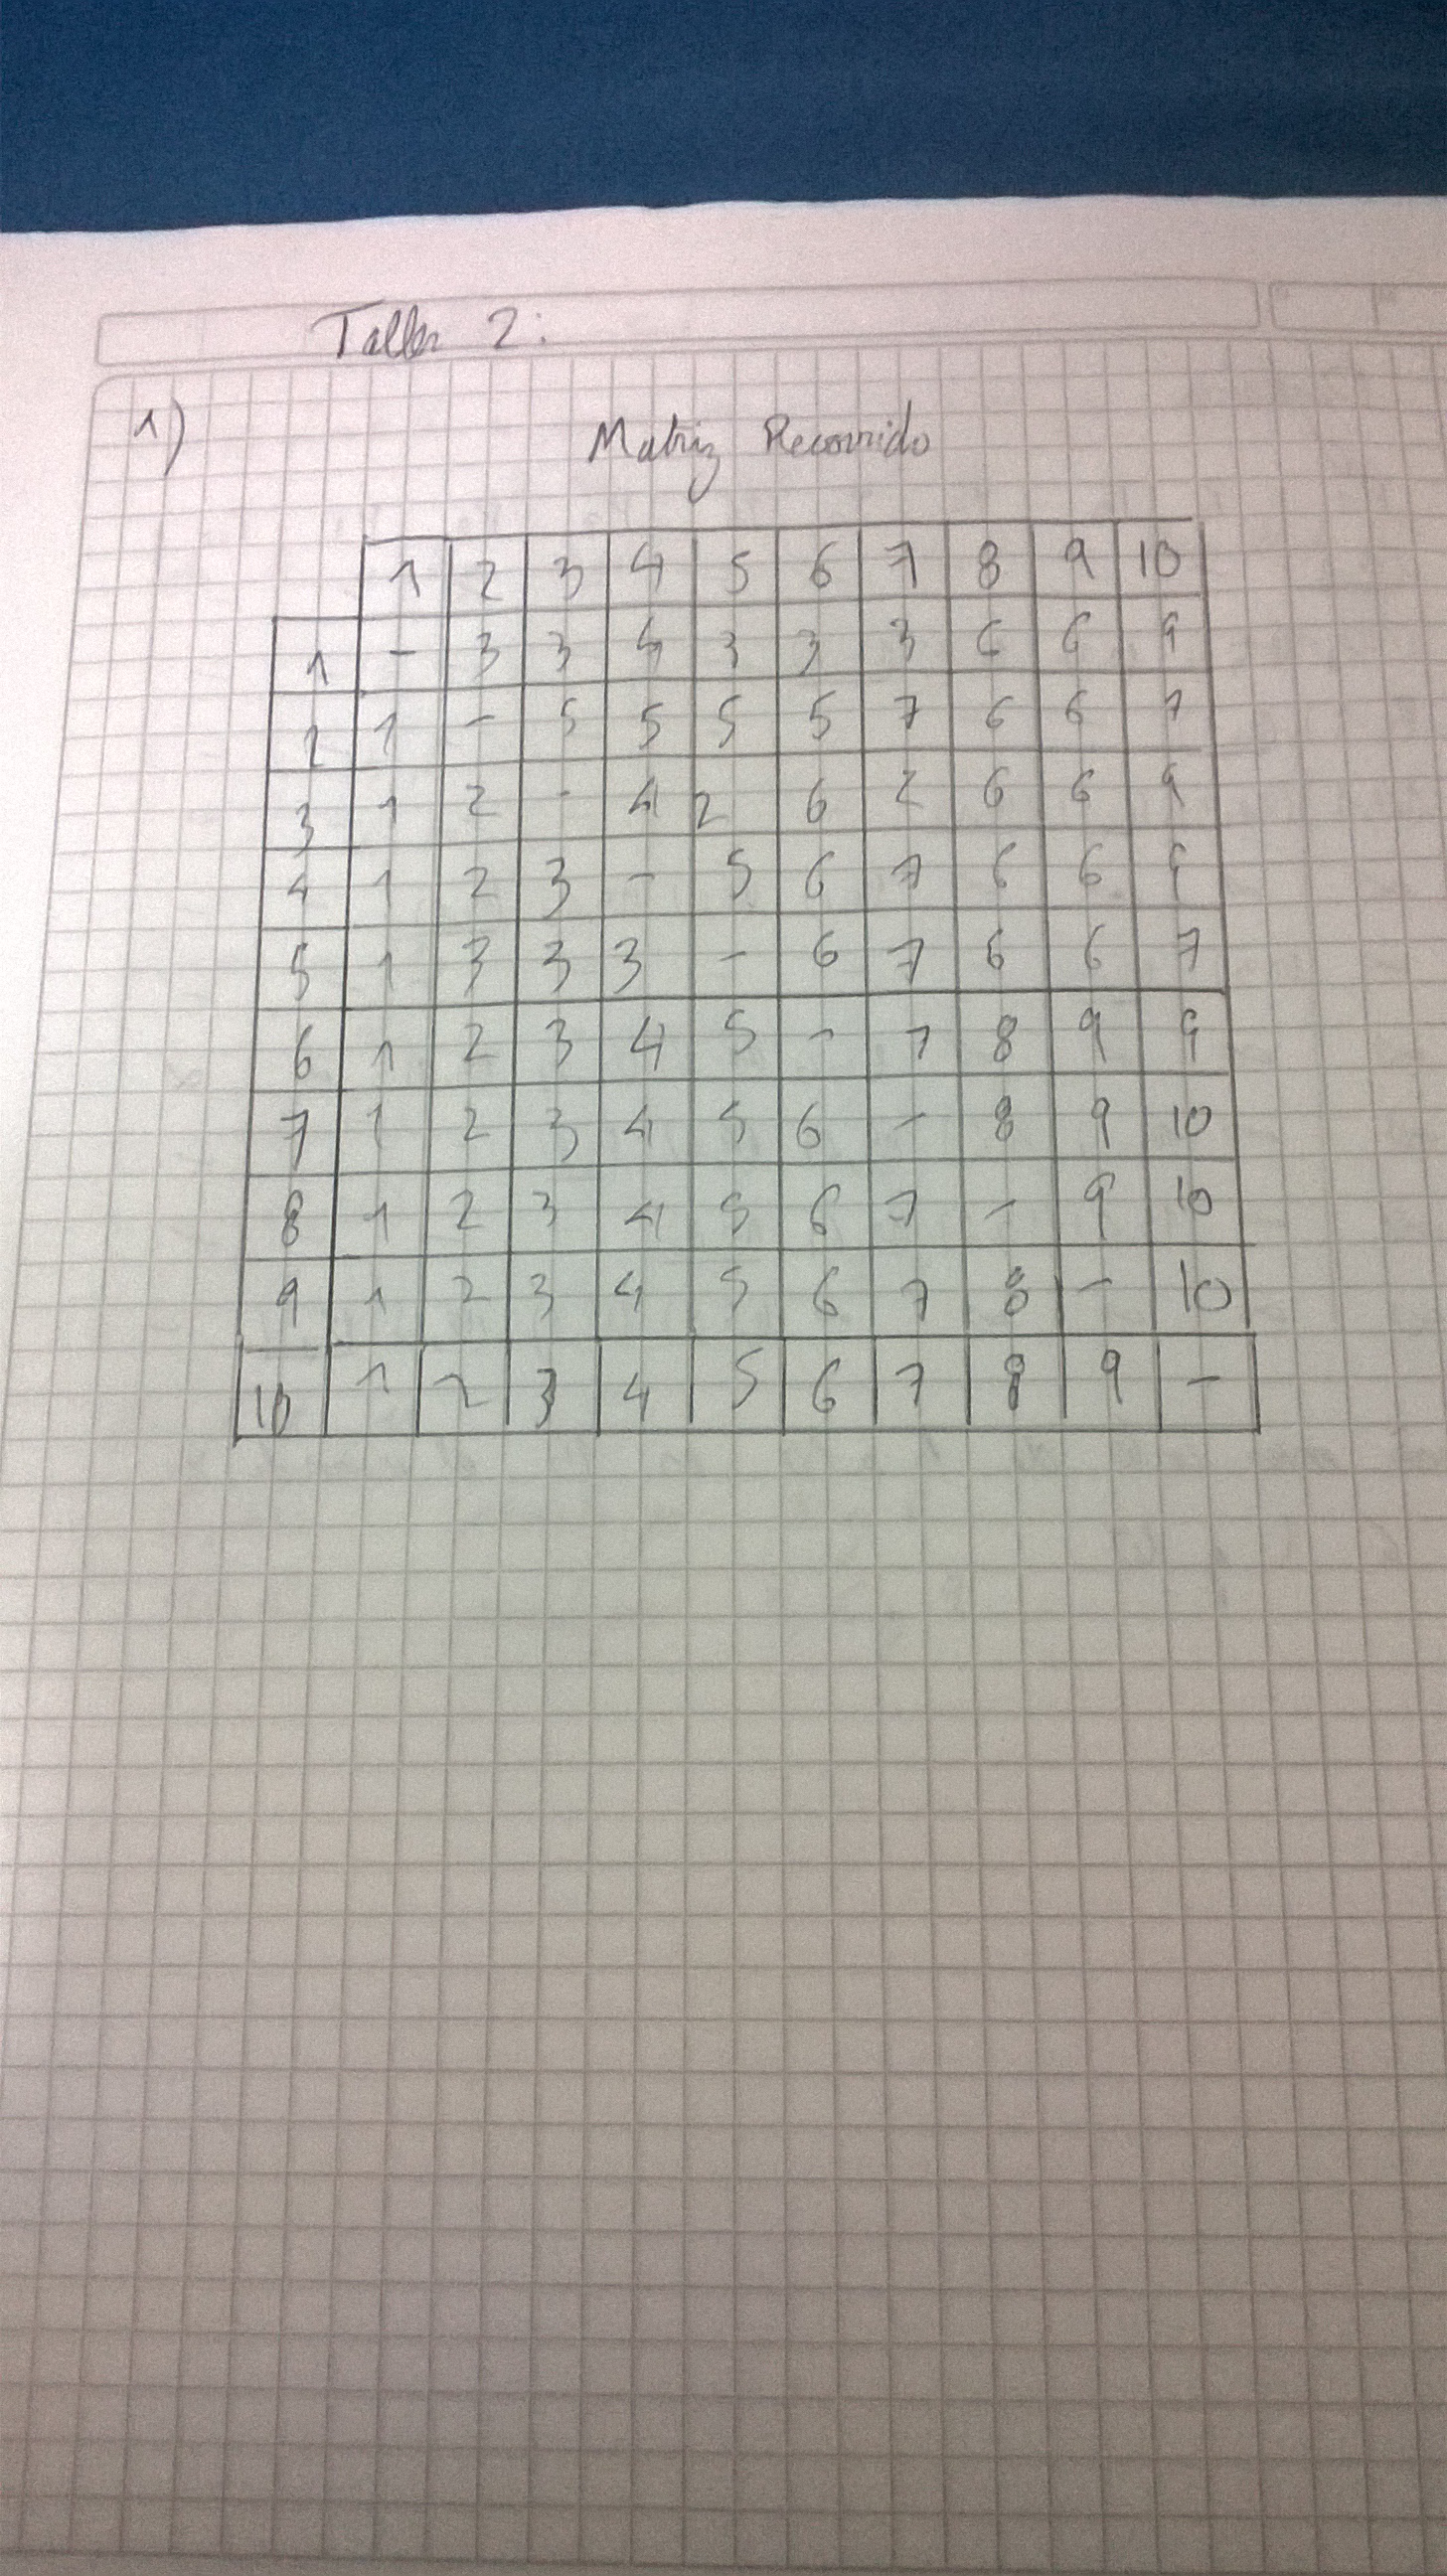 Taller 2:
1) Matriz Recorrido
1 2 3 4 5 6 7 8 9 10
1 - 3 3 4 3 3 3 6 6 9
2 1 - 5 5 5 5 7 6 6 7
3 1 2 - 4 2 6 2 6 6 9
4 1 2 3 - 5 6 7 6 6
5 1 3 3 3 - 6 7 6 6 7
6 1 2 3 4 5 - 7 8 9 9
7 1 2 3 4 5 6 - 8 9 10
8 1 2 3 4 5 6 7 - 9 10
9 1 2 3 4 5 6 7 8 - 10
10 1 2 3 4 5 6 7 8 9 -